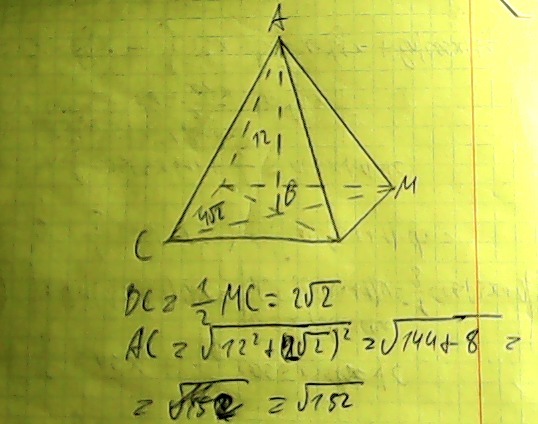 A
12
B
M
4√2
C
BC = 1/2 MC = 2√2
AC = √(12² + (2√2)²) = √(144 + 8) =
= √152 = √152